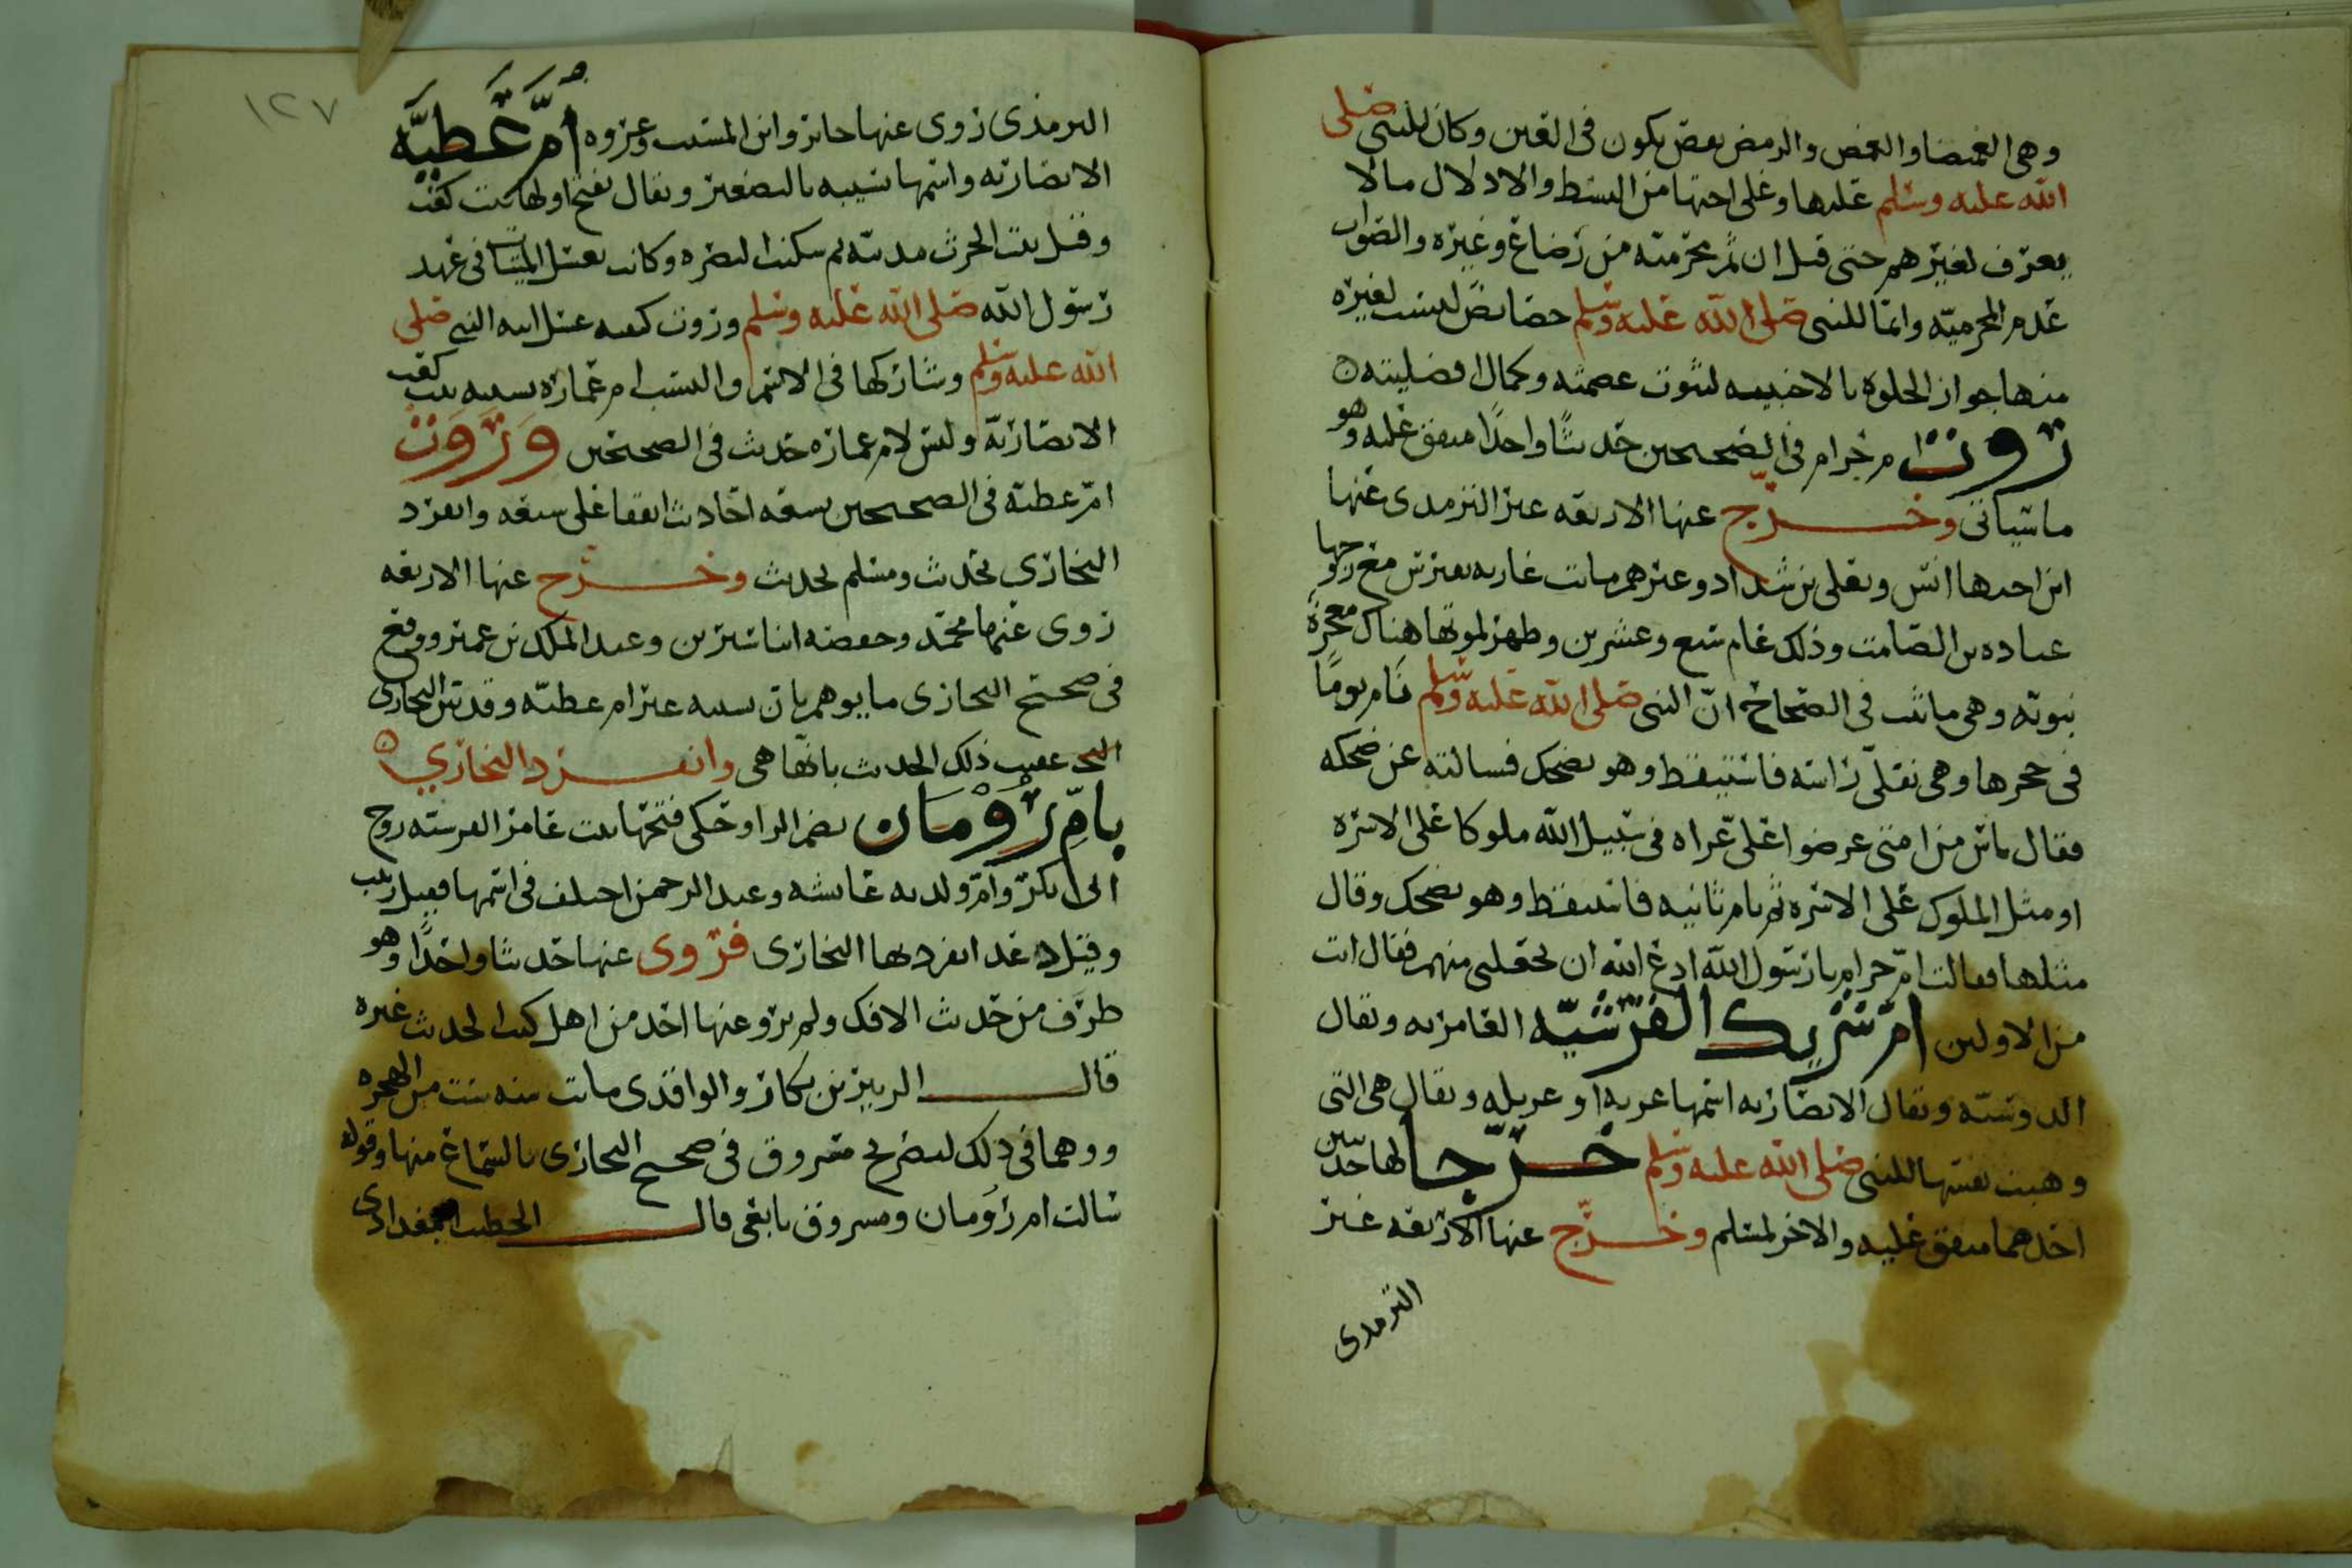 وهي الغميضا والغمض والرمض بعض يكون في العين وكان للنبي صلى
الله عليه وسلم عليها وعلى اختها من البسط والادلال مالا
يعرف لغيرهم حتى قيل ان ثم محرمته من رضاع وغيره والصواب
عدم المحرميه وانما للنبي صلى الله عليه وسلم خصايص ليست لغيره
منها جواز الخلوة بالاجنبيه لثبوت عصمته وكمال افضليته
روت ام حرام في الصحيحين حديثا واحدا متفق عليه وهو
ماسياتي وخرج عنها الاربعه غير الترمذي عنها
ابن اختها انس ويعلى بن شداد وغيرهم ماتت غازيه بقبرس مع زوجها
عباده بن الصامت وذلك عام سبع وعشرين وظهر لموتها هناك معجزة
نبوته وهي ماثبت في الصحاح ان النبي صلى الله عليه وسلم نام يوما
في حجرها وهي تفلي راسه فاستيقظ وهو يضحك فسالته عن ضحكه
فقال ناس من امتي عرضوا علي غزاه في سبيل الله ملوكا على الاسره
او مثل الملوك على الاسره ثم نام ثانيه فاستيقظ وهو يضحك وقال
مثلها فقالت ام حرام يارسول الله ادع الله ان يجعلني منهم فقال انت
من الاولين ام شريك القرشيه العامريه ويقال
الدوسيه ويقال الانصاريه اسمها غزيه او غزيله ويقال هي التي
وهبت نفسها للنبي صلى الله عليه وسلم خرجا لها حديثين
احدهما متفق عليه والاخر لمسلم وخرج عنها الاربعه غير
الترمدي
١٢٧
الترمذي روى عنها جابر وابن المسيب وعروه ام عطيه
الانصاريه واسمها نسيبه بالتصغير ويقال بفتح اولها بنت كعب
وقيل بنت الحرث مدنيه ثم سكنت البصره وكانت تغسل الميتات في عهد
رسول الله صلى الله عليه وسلم وروت كيفيه غسل ابنه النبي صلى
الله عليه وسلم وشاركها في الاسم والنسب ام عماره نسيبه بنت كعب
الانصاريه وليس لام عماره حديث في الصحيحين وروت
ام عطيه في الصحيحين تسعه احاديث اتفقا على سبعه وانفرد
البخاري بحديث ومسلم بحديث وخرج عنها الاربعه
روى عنها محمد وحفصه ابنا سيرين وعبد الملك بن عمير ووقع
في صحيح البخاري مايوهم بان نسيبه غير ام عطيه وقد بين البخاري
عقيب ذلك الحديث بانها هي وانفرد البخاري
بام رومان بضم الرا وحكي فتحها بنت عامر الفرسيه زوج
ابي بكر وام ولديه عايشه وعبد الرحمن اختلف في اسمها فقيل زينب
وقيل دعد انفرد بها البخاري فروى عنها حديثا واحدا وهو
طرف من حديث الافك ولم يرو عنها احد من اهل كتب الحديث غيره
قال الزبير بن بكار والواقدي ماتت سنه ست من الهجره
ووهما في ذلك لتصريح مسروق في صحيح البخاري بالسماع منها وقوله
سالت ام رومان ومسروق تابعي قال الخطيب البغدادي